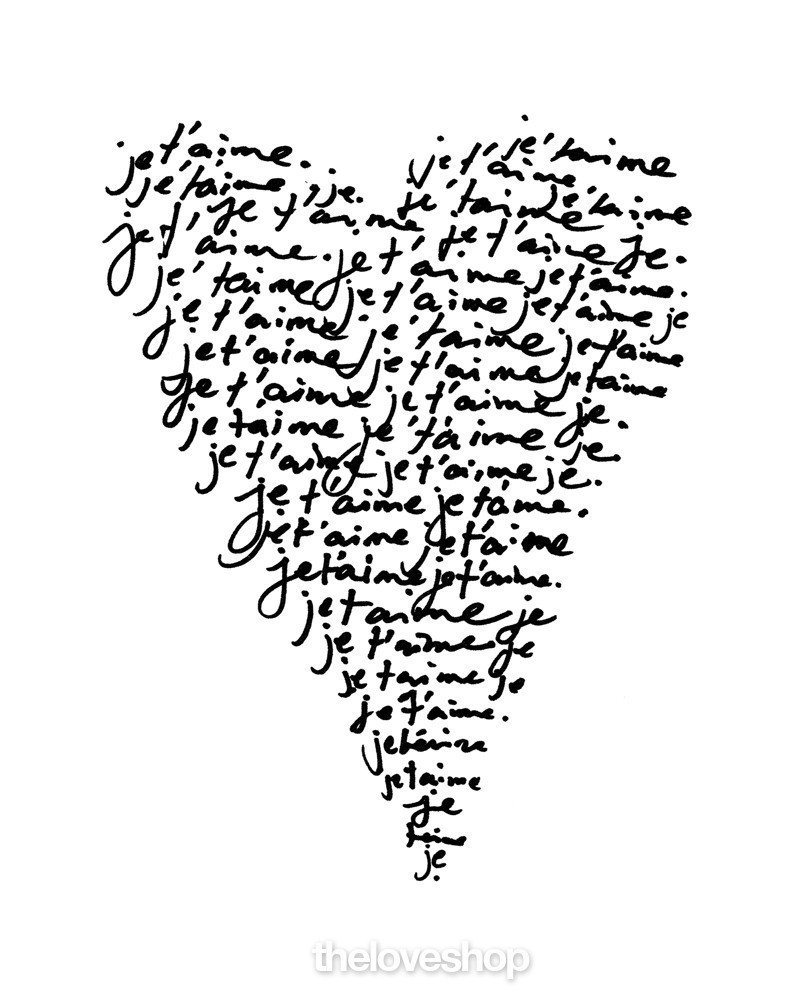 je t'aime. je t'aime
je t'aime je t'aime
je t'aime, je. je t'aime je t'aime
je t'aime je t'aime je.
je t'aime. je t'aime je t'aime.
je t'aime je t'aime je t'aime je
je t'aime je t'aime je t'aime
je t'aime je t'aime je taime
je t'aime je t'aime je.
je t'aime je t'aime je
je t'aime je t'aime je.
je t'aime je t'aime.
je t'aime je t'aime
je t'aime je t'aime.
je taime je
je t'aime je
je taime je
je t'aime.
je taime
je
taime
je
theloveshop